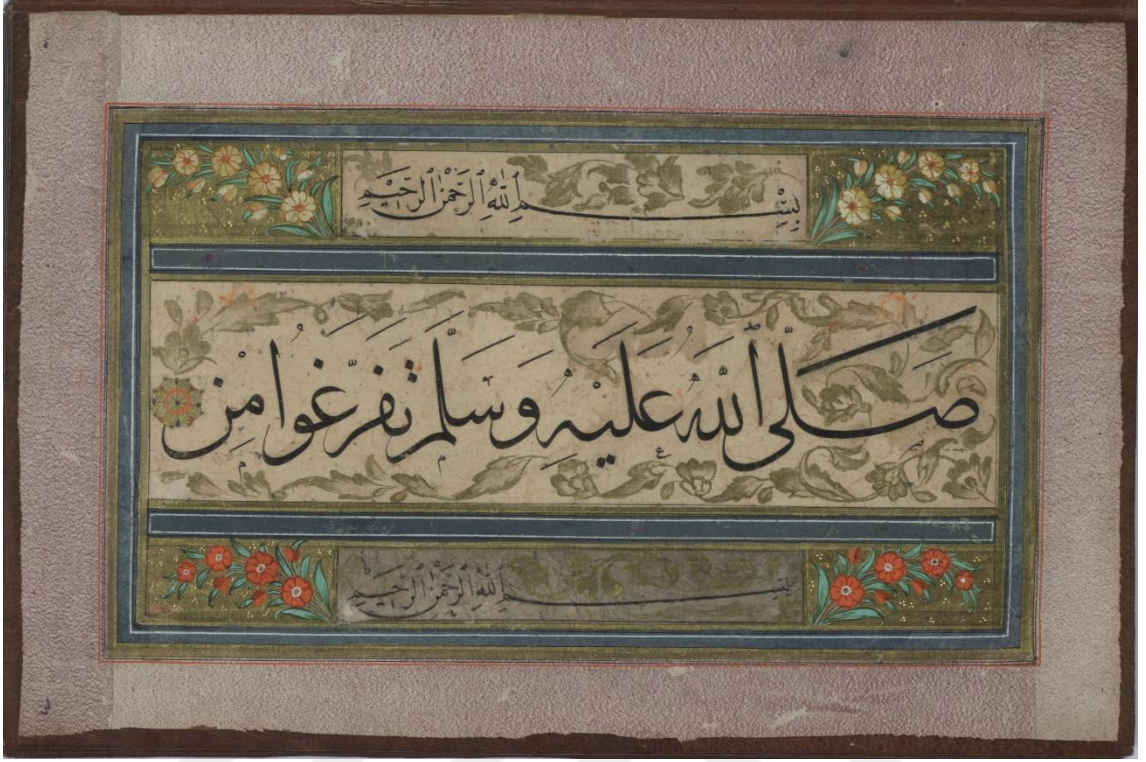 بِسْمِ ٱللّٰهِ ٱلرَّحْمٰنِ ٱلرَّحِيْمِ
صَلَّى ٱللّٰهُ عَلَيْهِ وَسَلَّمَ تَفَرَّغُوا مِنْ
بِسْمِ ٱللّٰهِ ٱلرَّحْمٰنِ ٱلرَّحِيْمِ